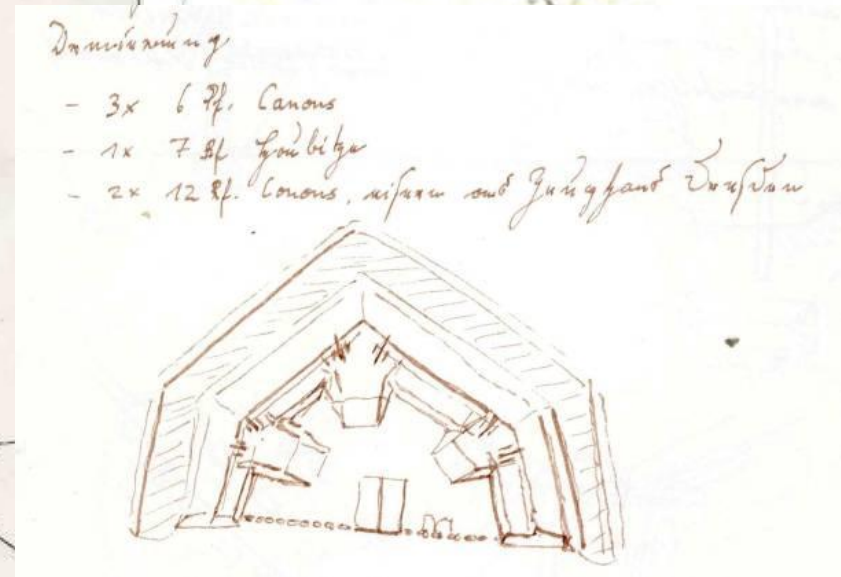 Armierung
- 3x 6 Pf. Canons
- 1x 7 Pf Haubitze
- 2x 12 Pf. Canons, eisern aus Zeughaus Dresden